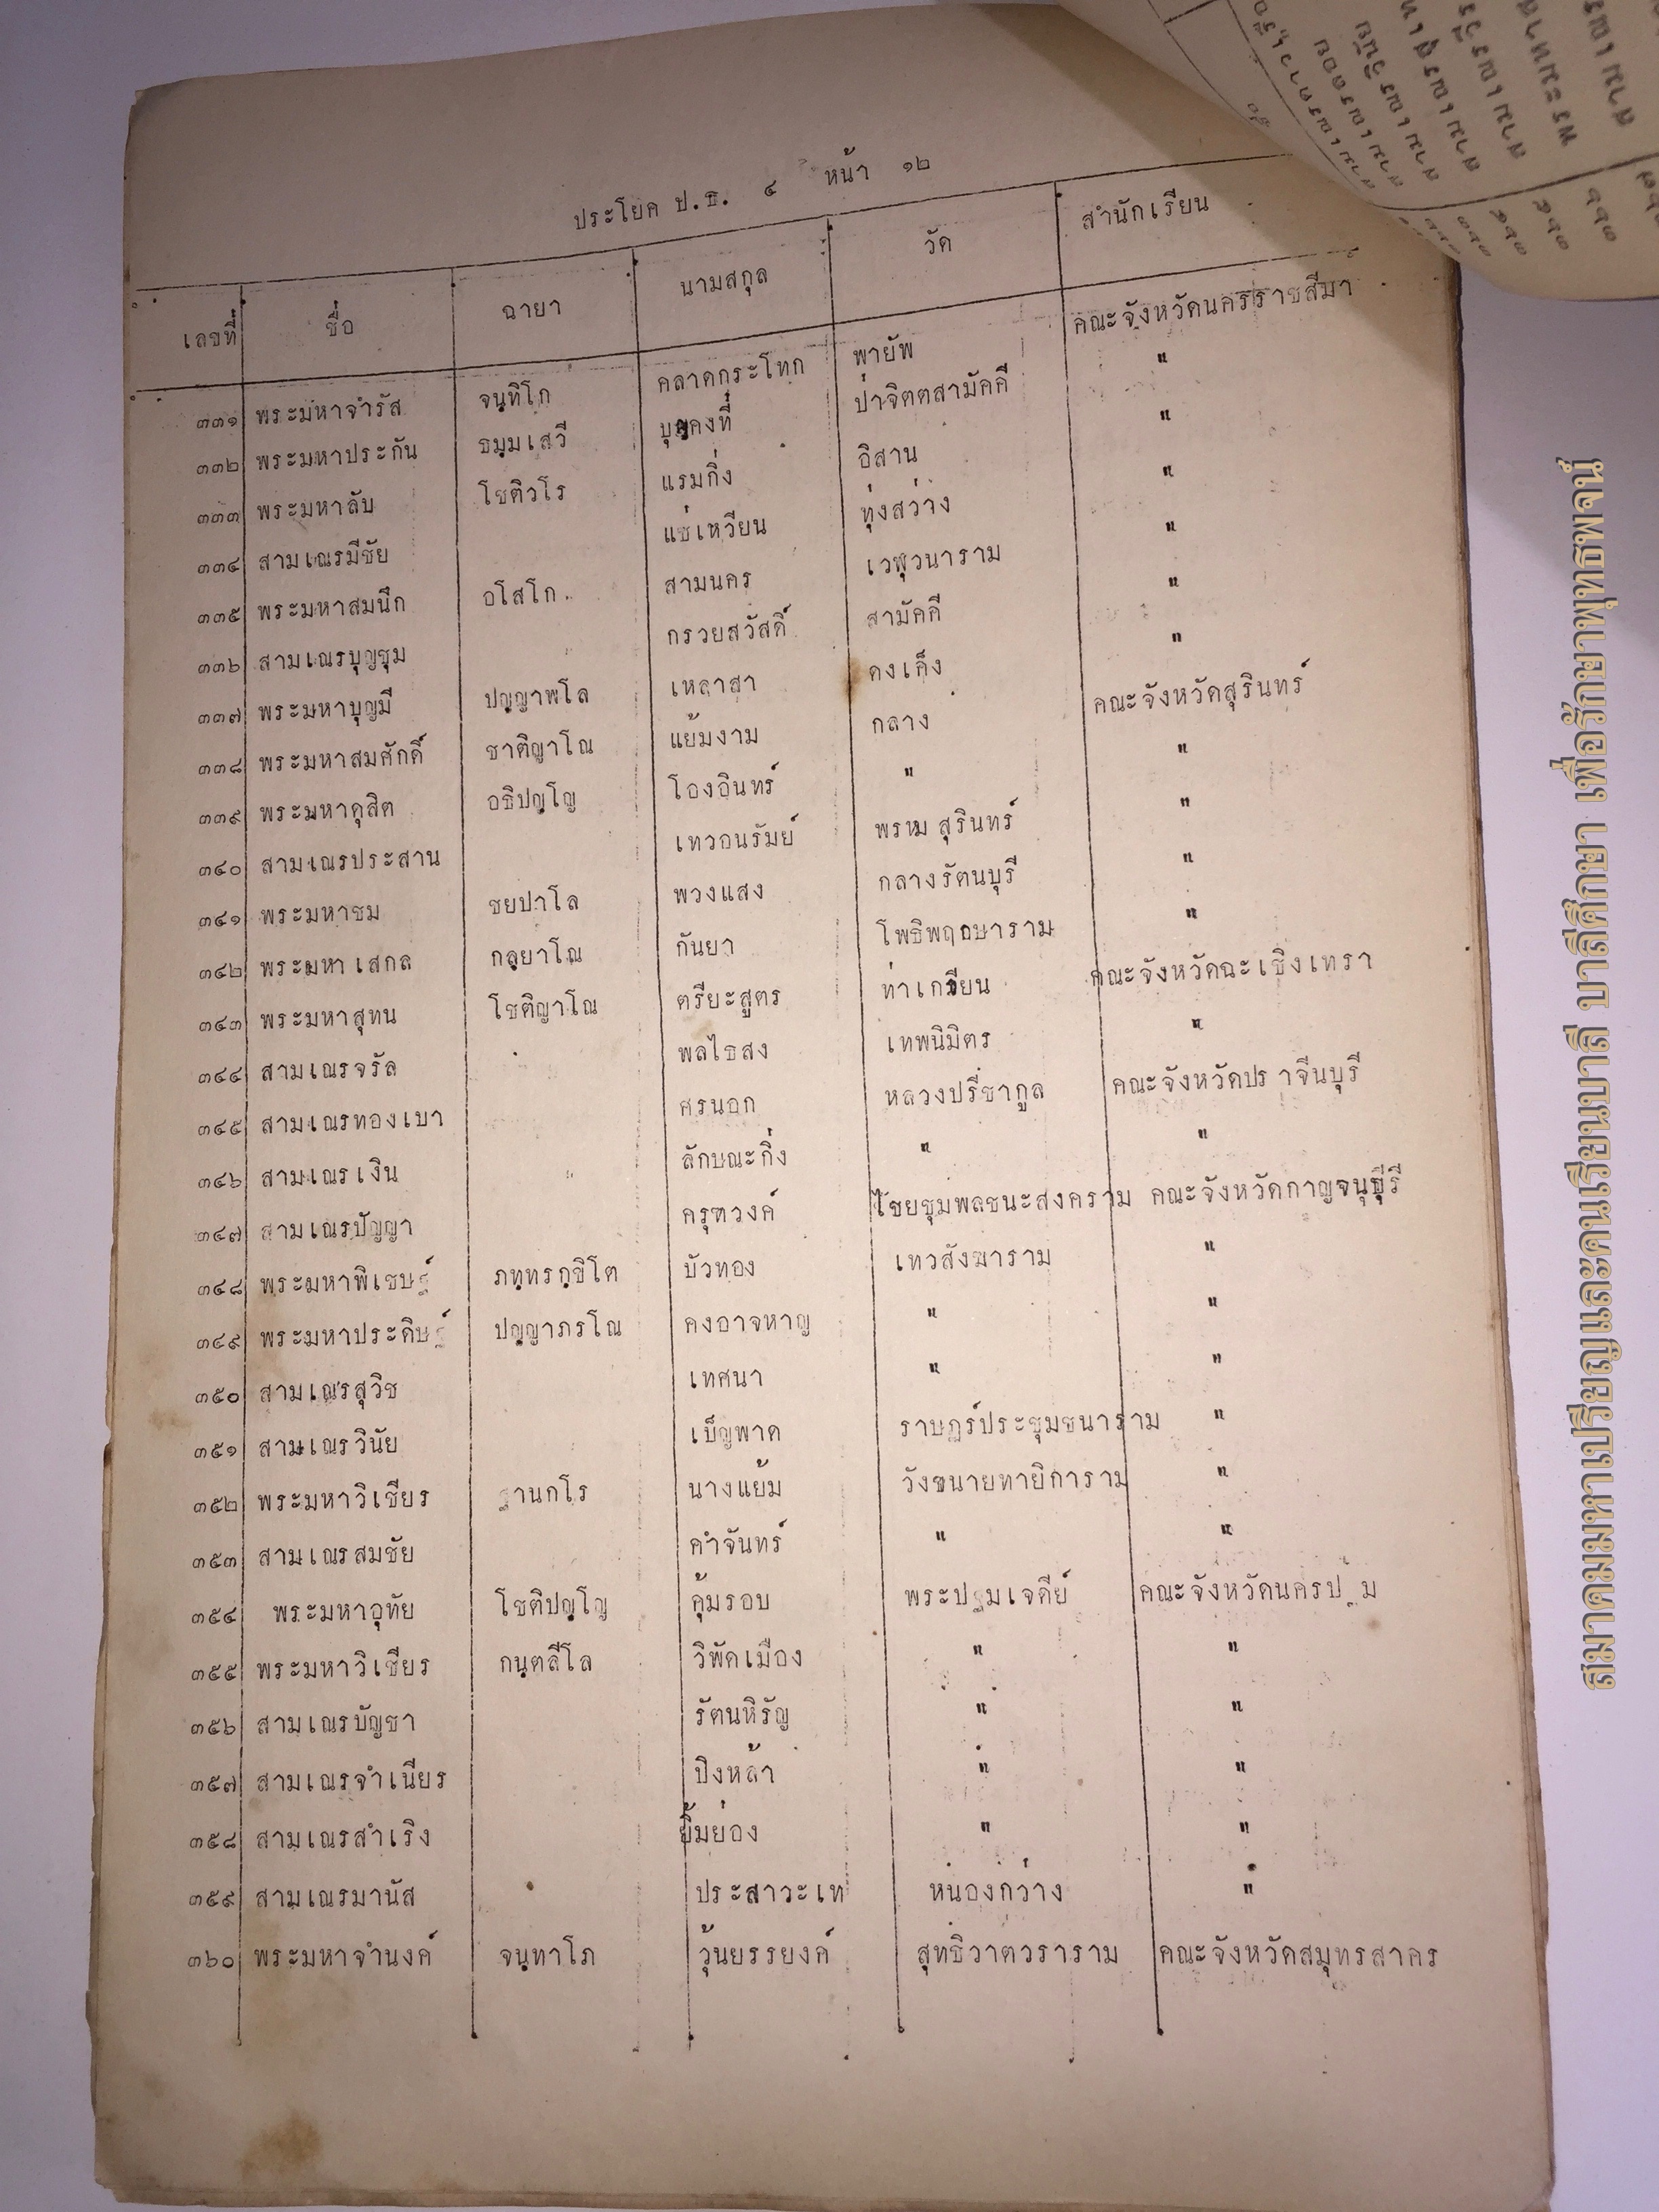 ประโยค ป.ธ. ๔ หน้า ๑๒
เลขที่ ชื่อ ฉายา นามสกุล วัด สำนักเรียน
๓๓๑ พระมหาจำรัส จนฺทิโก คลาดกระโทก พายัพ คณะจังหวัดนครราชสีมา
๓๓๒ พระมหาประกัน ธมฺมเสวี บุญคงที่ ป่าจิตตสามัคคี "
๓๓๓ พระมหาลับ โชติวโร แรมกิ่ง อิสาน "
๓๓๔ สามเณรมีชัย แซ่เหวียน ทุ่งสว่าง "
๓๓๕ พระมหาสมนึก อโสโก สามนคร เวฬุวนาราม "
๓๓๖ สามเณรบุญชุม กรวยสวัสดิ์ สามัคคี "
๓๓๗ พระมหาบุญมี ปญฺญาพโล เหลาสา ดงเค็ง "
๓๓๘ พระมหาสมศักดิ์ ชาติญาโณ แย้มงาม กลาง คณะจังหวัดสุรินทร์
๓๓๙ พระมหาดุสิต อธิปญฺโญ โองอินทร์ " "
๓๔๐ สามเณรประสาน เทวอนรัมย์ พรหม สุรินทร์ "
๓๔๑ พระมหาชม ชยปาโล พวงแสง กลางรัตนบุรี "
๓๔๒ พระมหาเสกล กลฺยาโณ กันยา โพธิพฤกษาราม "
๓๔๓ พระมหาสุทน โชติญาโณ ตรียะสูตร ท่าเกวียน คณะจังหวัดฉะเชิงเทรา
๓๔๔ สามเณรจรัล พลไธสง เทพนิมิตร "
๓๔๕ สามเณรทองเบา ศรนอก หลวงปรีชากูล คณะจังหวัดปราจีนบุรี
๓๔๖ สามเณรเงิน ลักษณะกิ่ง " "
๓๔๗ สามเณรปัญญา ครุฑวงค์ ไชยชุมพลชนะสงคราม คณะจังหวัดกาญจนบุรี
๓๔๘ พระมหาพิเชษฐ์ ภทฺทรกฺขิโต บัวทอง เทวสังฆาราม "
๓๔๙ พระมหาประดิษฐ์ ปญฺญาภรโณ คงอาจหาญ " "
๓๕๐ สามเณรสุวิช เทศนา " "
๓๕๑ สามเณรวินัย เบ็ญพาด ราษฎร์ประชุมชนาราม "
๓๕๒ พระมหาวิเชียร ฐานกโร นางแย้ม วังขนายทายิการาม "
๓๕๓ สามเณรสมชัย คำจันทร์ " "
๓๕๔ พระมหาอุทัย โชติปญฺโญ คุ้มรอบ พระปฐมเจดีย์ คณะจังหวัดนครปฐม
๓๕๕ พระมหาวิเชียร กนฺตสีโล วิพัดเมือง " "
๓๕๖ สามเณรบัญชา รัตนหิรัญ " "
๓๕๗ สามเณรจำเนียร ปิงหล้า " "
๓๕๘ สามเณรสำเริง ยิ้มย่อง " "
๓๕๙ สามเณรมานัส ประสาวะเท หนองกว้าง "
๓๖๐ พระมหาจำนงค์ จนฺทาโภ วุ้นยรรยงค์ สุทธิวาตวราราม คณะจังหวัดสมุทรสาคร
สมาคมมหาเปรียญและคนเรียนบาลี บาลีศึกษา เพื่อรักษาพุทธพจน์